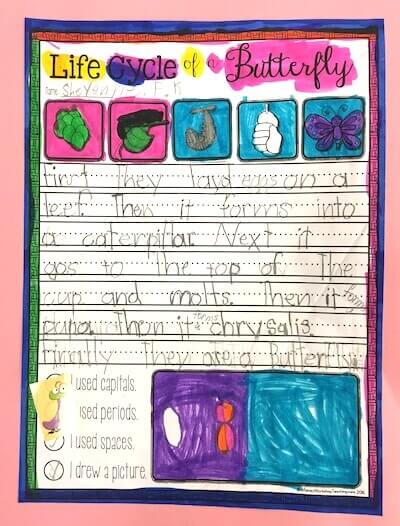 Life Cycle of a Butterfly
name
First They layd eggs on a
leef. Then it forms into
a caterpillar. Next it
gos to The top of The
cup and molts. Then it forms
pupa. Then it forms chrysalis
Finally They are a Butterfly
I used capitals.
used periods.
I used spaces.
I drew a picture.